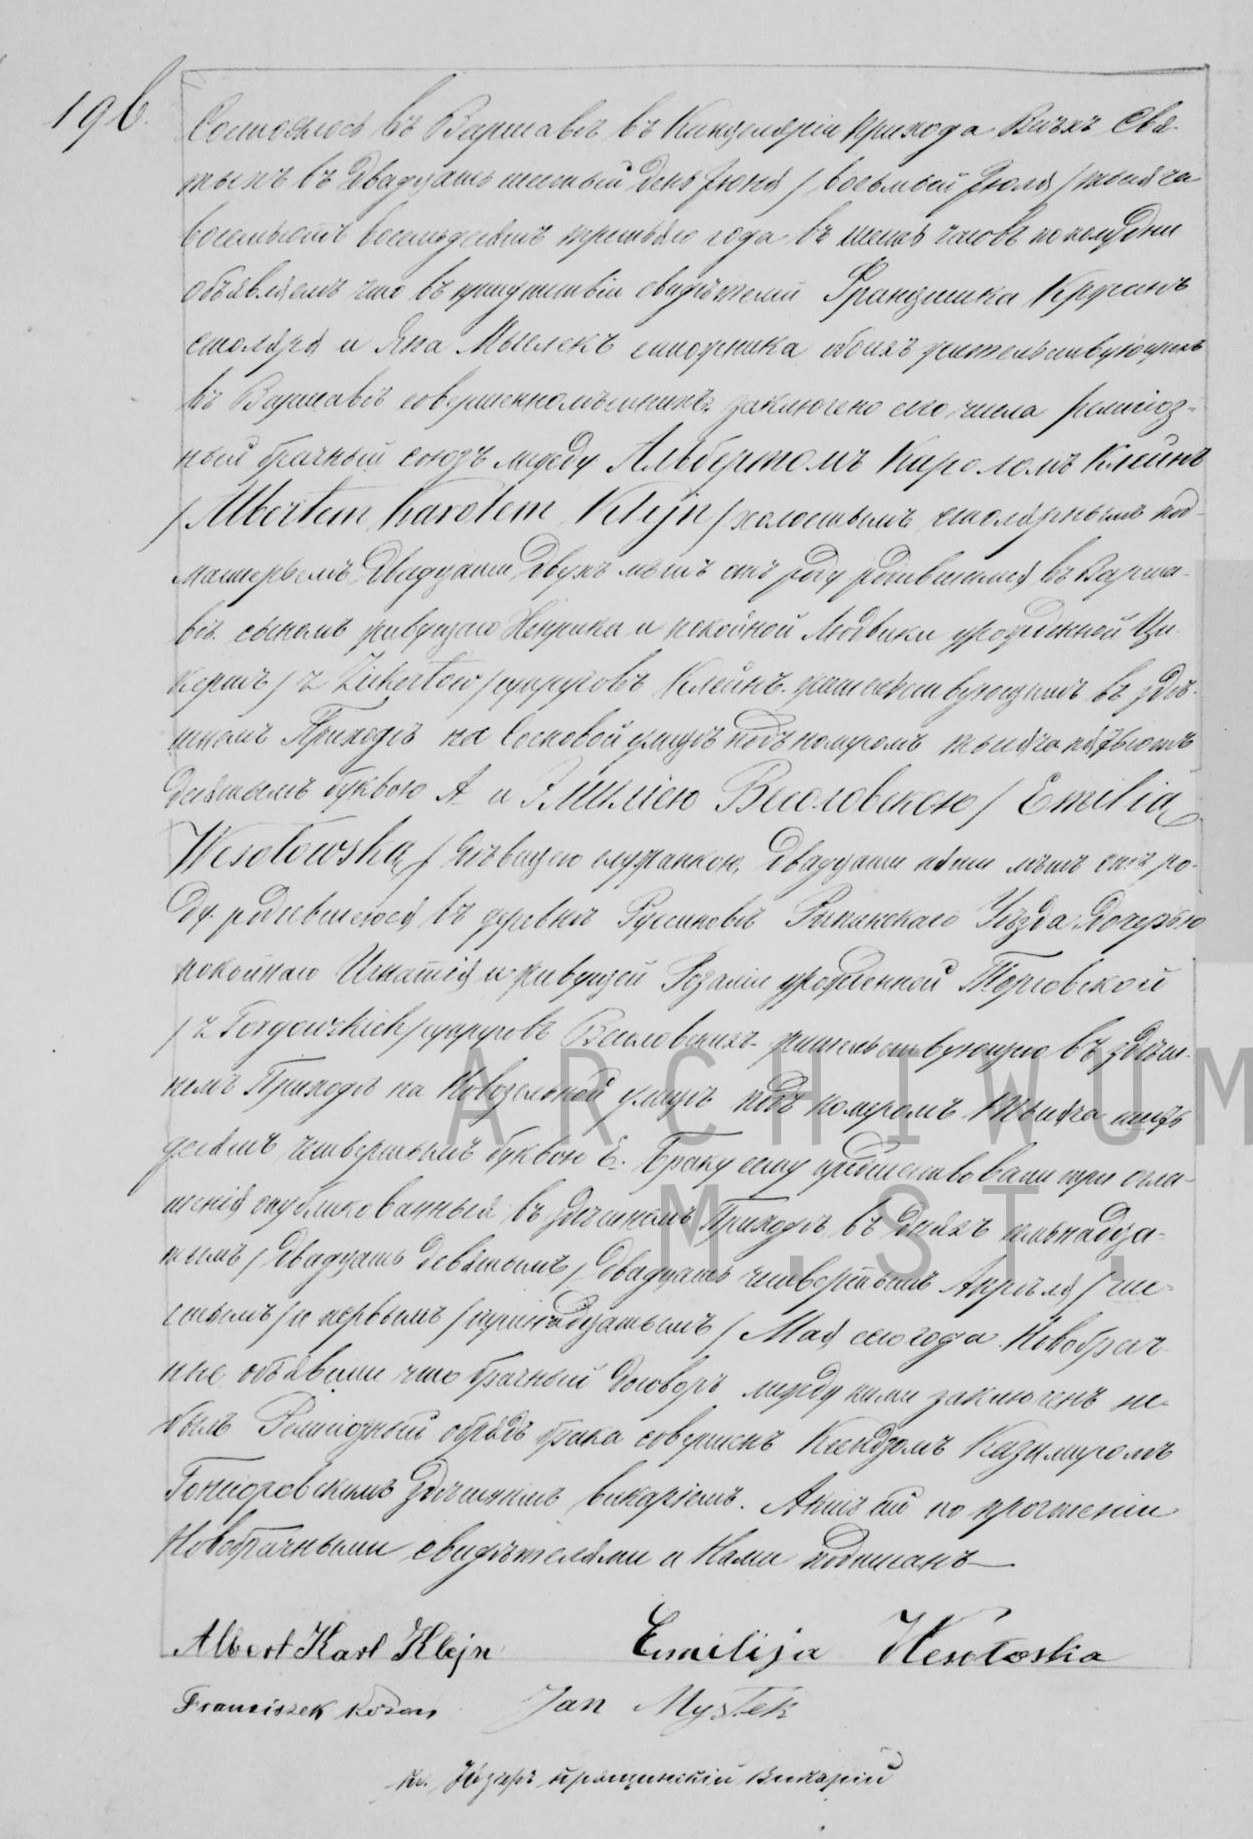 196.
Состоялось въ Варшавѣ въ Канцеляріи прихода Всѣхъ Свя-
тыхъ въ двадцать шестый день Іюня / восьмый Іюля / тысяча
восемьсотъ восемьдесятъ третьяго года въ шесть часовъ по полудни
объявляемъ что въ присутствіи свидѣтелей Францишка
столяра и Яна Мыслекъ обоихъ жительствующихъ
въ Варшавѣ совершеннолѣтнихъ, заключено сего числа религіоз-
ный брачный союзъ между Альбертомъ Кароломъ Клейнъ
/ Albertem Karolem Klejn / холостымъ столярнымъ под-
мастерьемъ двадцати двухъ лѣтъ отъ роду родившимся въ Варша-
вѣ сыномъ живущаго Генрика и покойной Людвики урожденной Ци-
кертъ / z Zikertow / супруговъ Клейнъ жительствующимъ въ здѣ-
шномъ Приходѣ на Сосновой улицѣ подъ номеромъ тысяча пятьсотъ
десятымъ буквою А. и Эмиліею Весоловскою / Emilią
Wesołowską / дѣвицею служанкою, двадцати пяти лѣтъ отъ ро-
ду родившеюся въ деревнѣ Русиновѣ Уѣзда, дочерью
покойнаго Игнатія и живущей Розаліи урожденной Торговской
/ z Torgowskich / супруговъ Весоловскихъ жительствующею въ здѣш-
немъ Приходѣ на улицѣ подъ номеромъ тысяча
десятъ четвертымъ буквою Е. Браку сему предшествовали три огла-
шенія опубликованныя въ здѣшномъ Приходѣ въ дняхъ
тымъ / двадцать девятомъ /, двадцать четвертомъ Апрѣля / ше-
стымъ / и первымъ / тринадцатымъ / Мая сего года. Новобрач-
ные объявили что брачный договоръ между ними заключенъ не
былъ Религіозный обрядъ брака совершенъ Ксендзомъ Казимиромъ
здѣшнимъ викаріемъ. Актъ сей по прочтеніи
Новобрачными свидѣтелями и Нами подписанъ—
Albert Karl Klejn Emilija Wesołoska
Franciszek Jan Mysłek
Кс. Викарій
ARCHIWUM
M. ST.